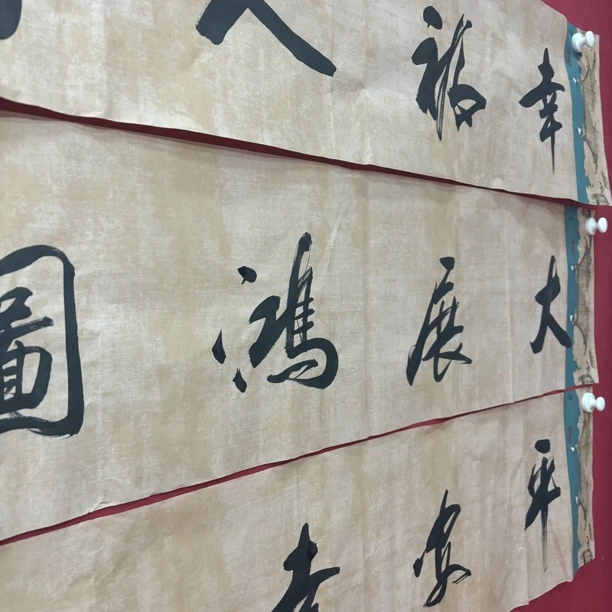 幸福人
大展鴻圖
平安